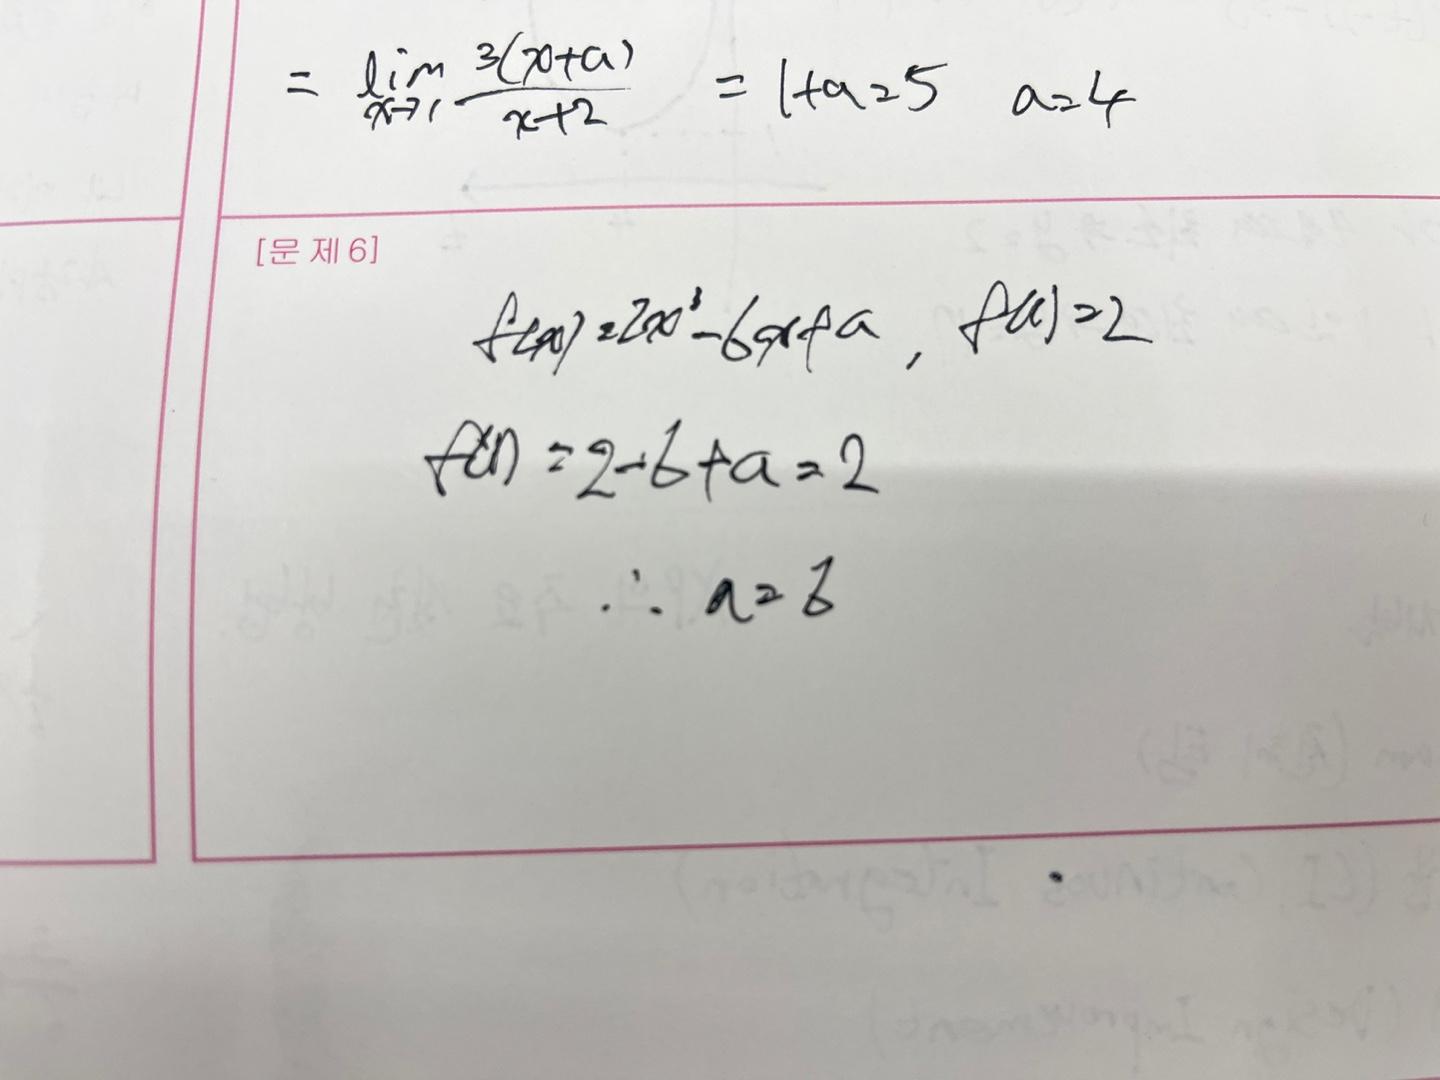 = lim x→1 3(x+a)/x+2 = 1+a=5 a=4
[문제6]
f(x)=2x³-6x+a, f(1)=2
f(1)=2-6+a=2
∴ a=6